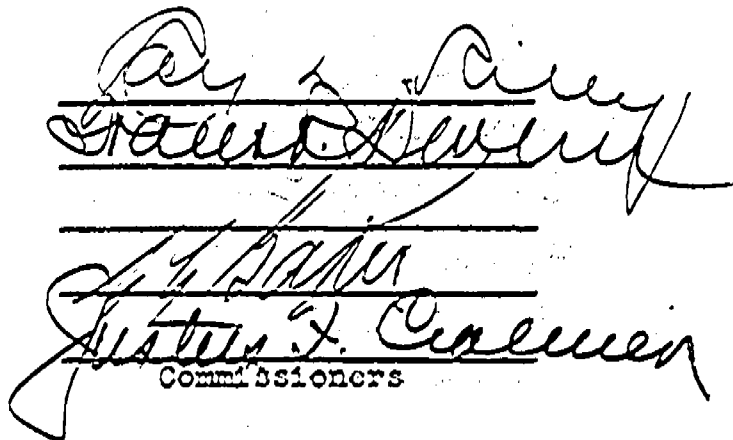 Ray L. Riley
Frank R. Devlin
Baker
Justus F. Craemer
Commissioners